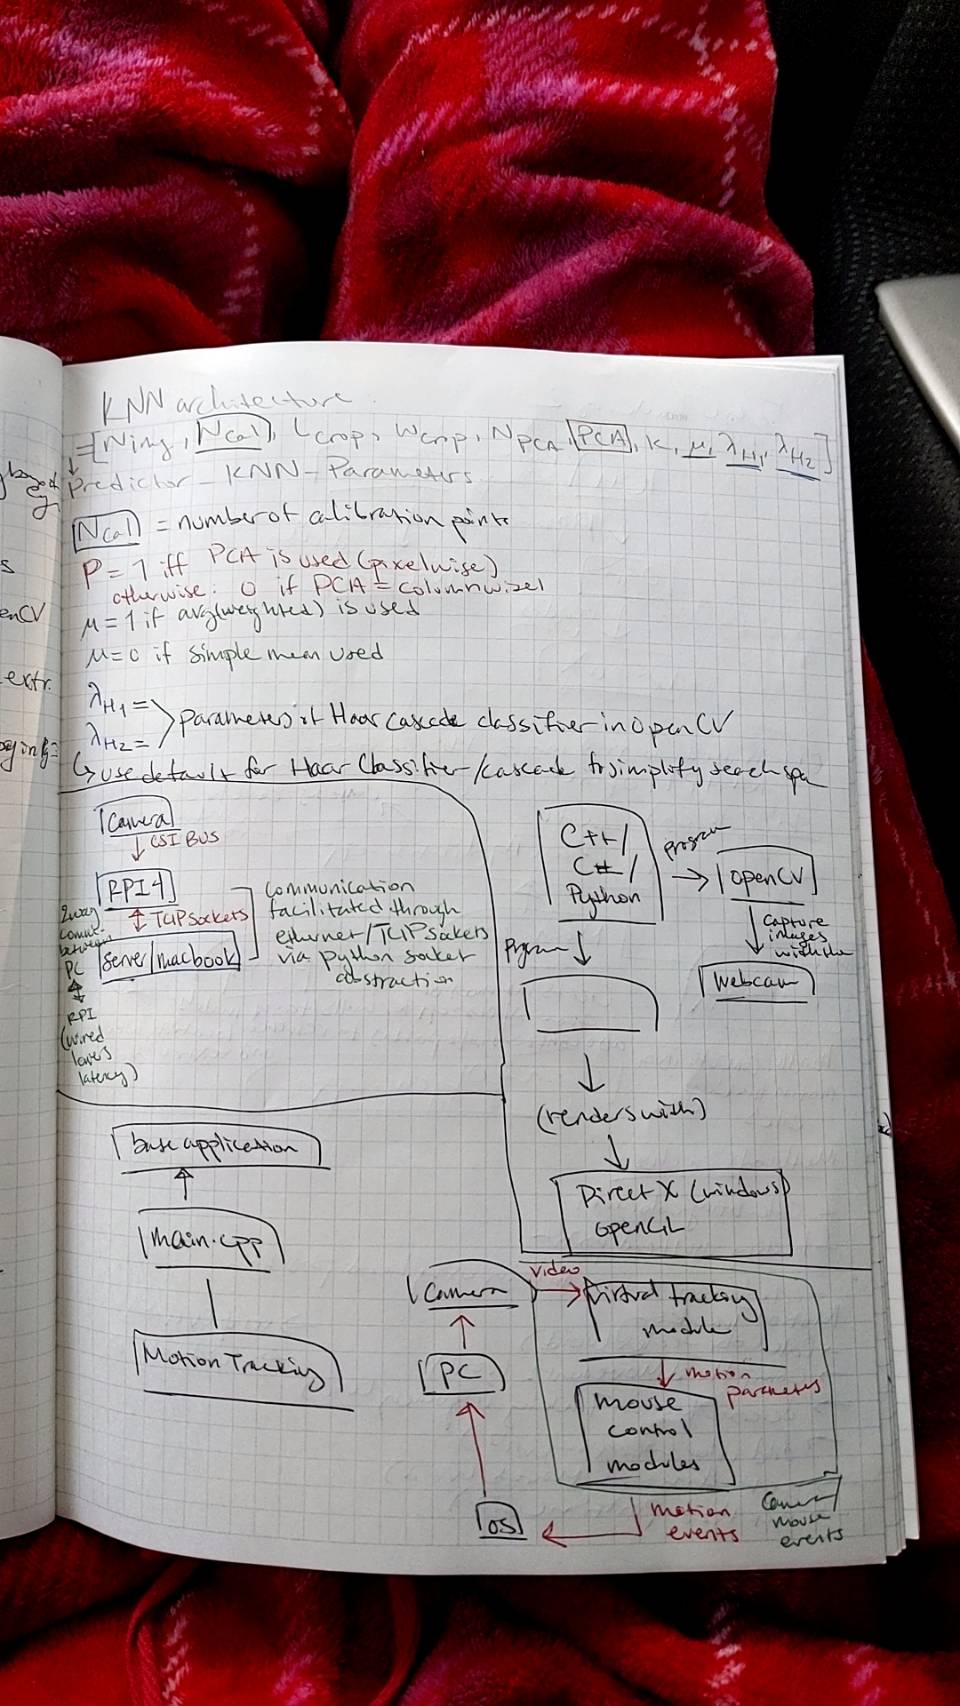 KNN architecture
=[Nimg, Ncal, Lcrop, Wcrop, NPCA, PCA, K, μ, λH1, λH2]
Predictor_KNN-Parameters
Ncal = number of calibration points
P = 1 iff PCA is used (pixelwise)
otherwise: 0 if PCA = columnwise
μ=1 if avg(weighted) is used
μ=0 if simple mean used
λH1 =
λH2 =
parameters of Haar Cascade classifier in OpenCV
↳ use default for Haar Classifier/cascade to simplify search spa
Camera
↓ CSI BUS
RPI4
↕ TCIP Sockets
Server/macbook
2way
comm.
between
PC
↕
RPI
(wired
lowers
latency)
Communication
facilitated through
ethernet/TCIP sockets
via python socket
abstraction
C++/
C#/
Python
program
→
openCV
↓
capture
images
with the
Webcam
Program ↓
↓
(renders with)
↓
Direct X (windows)
openGL
base application
↑
main.cpp
Motion Tracking
Camera
↑
PC
↑
OS
video
→
Virtual tracking
module
↓ motion
parameters
mouse
control
modules
motion
events
Camera
mouse
events
s
enCV
extr.